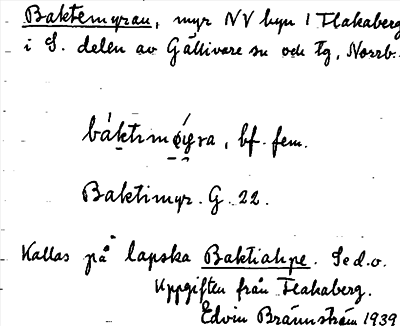 Baktemyran, myr NV byn i Flakaberg
i S. delen av Gällivare sn och tg, Norrb.
bf. fem.
Baktimyr. G 22.
Kallas på lapska Baktiahpe. Se d.o.
Uppgiften från Flakaberg.
Edvin Brännström 1939